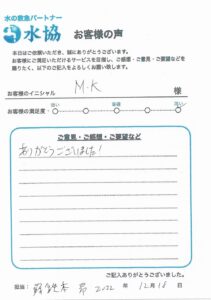 水の救急パートナー
水協 お客様の声
本日はご依頼いただき、誠にありがとうございます。
お客様にご満足いただけるサービスを目指し、ご感想・ご意見・ご要望などを
賜りたく、以下のご記入をよろしくお願い致します。
お客様のイニシャル M・K 様
お客様の満足度
ご意見・ご感想・ご要望など
ありがとうございました!
ご記入ありがとうございました。
担当: 2022 年 12月 18日